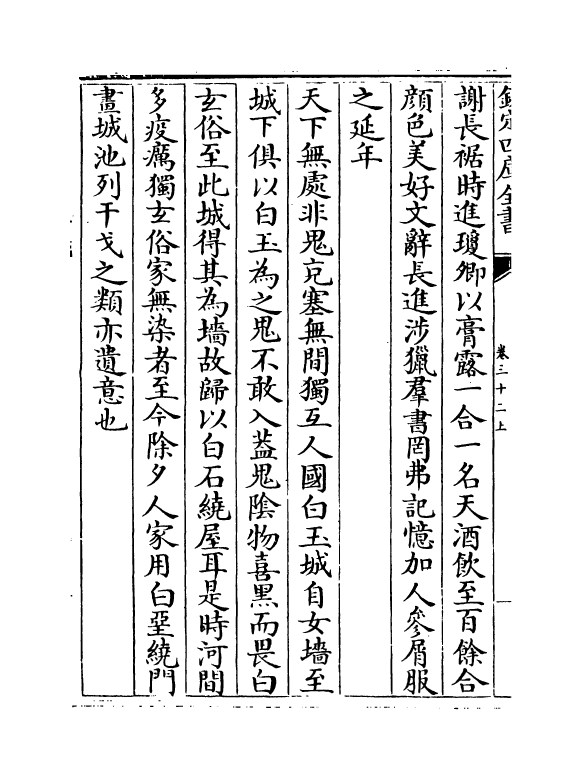 欽定四庫全書
卷三十二上
謝長裾時進瓊卿以膏露一合一名天酒飲至百餘合
顔色美好文辭長進涉獵羣書罔弗記憶加人參屑服
之延年
天下無處非鬼充塞無間獨互人國白玉城自女墻至
城下俱以白玉為之鬼不敢入葢鬼陰物喜黒而畏白
玄俗至此城得其為墻故歸以白石繞屋耳是時河間
多疫癘獨玄俗家無染者至今除夕人家用白堊繞門
畫城池列干戈之類亦遺意也